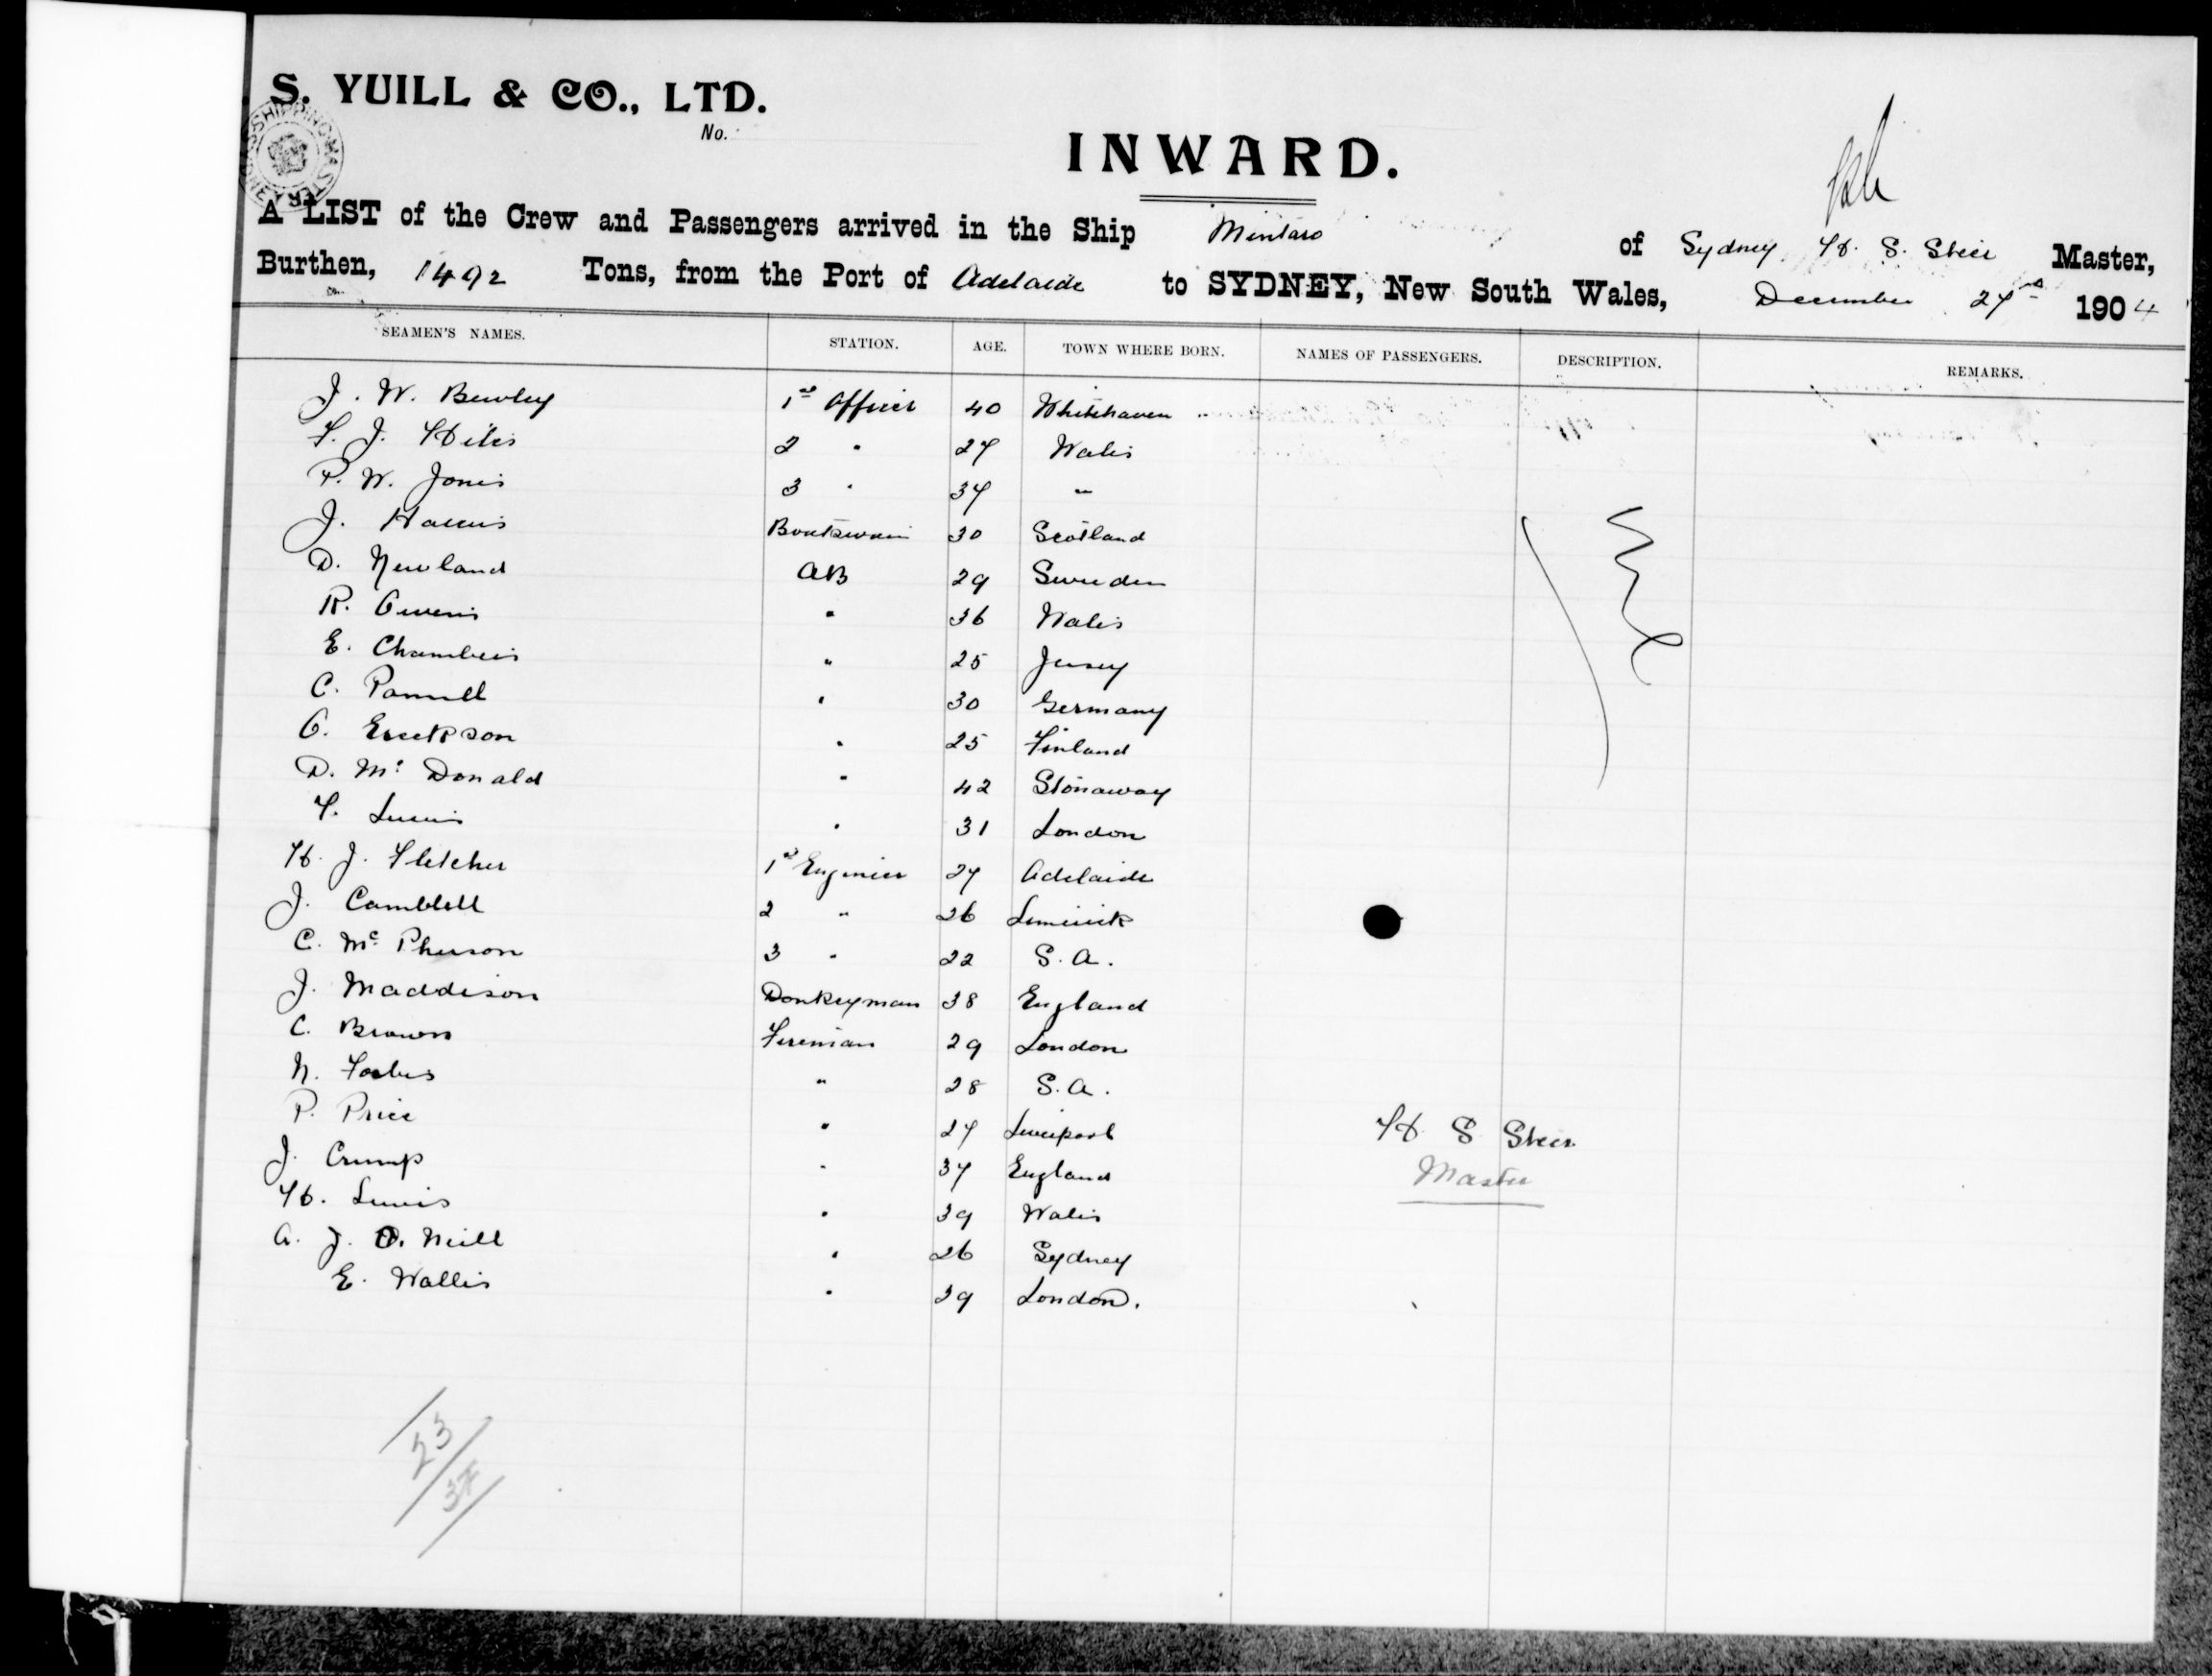 S. YUILL & CO., LTD.
No.
INWARD.
SHIPPING MASTER SYDNEY
A LIST of the Crew and Passengers arrived in the Ship Mintaro of Sydney, H. S. Steer Master,
Burthen, 1492 Tons, from the Port of Adelaide to SYDNEY, New South Wales, December 27th 1904
SEAMEN'S NAMES. STATION. AGE. TOWN WHERE BORN. NAMES OF PASSENGERS. DESCRIPTION. REMARKS.
J. W. Bewley 1st Officer 40 Whitehaven
F. J. Hiles 2 " 27 Wales
P. W. Jones 3 " 37 "
J. Boatswain 30 Scotland
D. Newland AB 29 Sweden
R. Owens " 36 Wales
E. Chambers " 25 Jersey
C. " 30 Germany
O. Erickson " 25 Finland
D. Mc Donald " 42 Stonaway
F. Lewis " 31 London
H. J. Fletcher 1st Engineer 27 Adelaide
J. Cambbell 2 " 26 Limerick
C. Mc Pherson 3 " 22 S. A.
J. Maddison Donkeyman 38 England
C. Brown Fireman 29 London
N. Forbes " 28 S. A.
P. Price " 27 Liverpool
J. Crump " 37 England
H. Lewis " 39 Wales
A. J. O. Neill " 26 Sydney
E. Wallis " 39 London.
H S Steer
Master
23
37